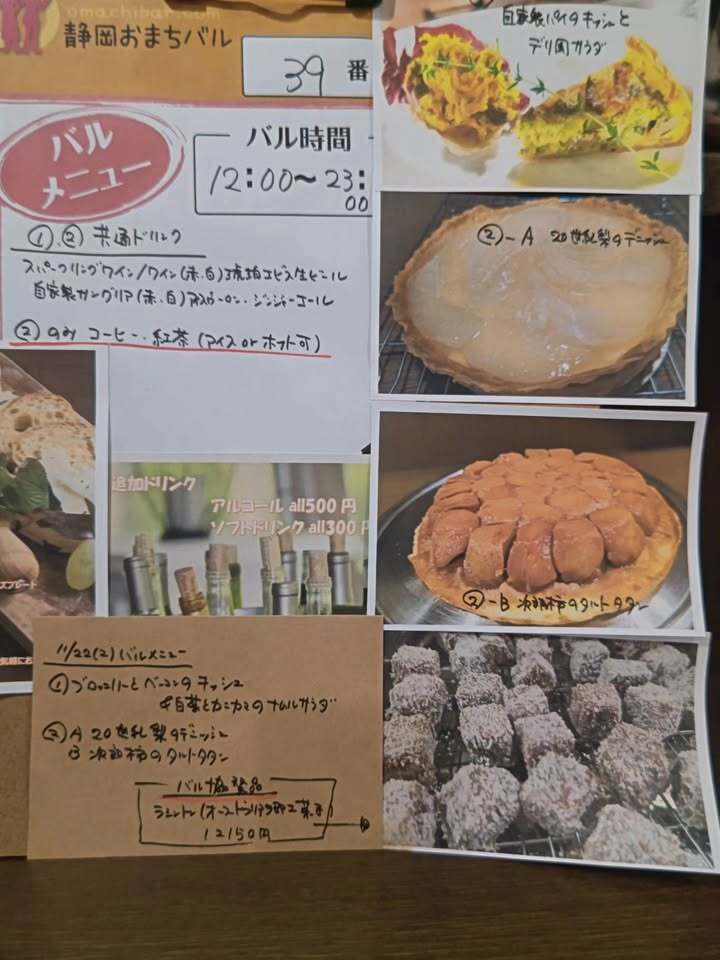 omachibar.com
静岡おまちバル
39 番
バル
メニュー
バル時間
12:00〜23:00
①,② 共通ドリンク
スパークリングワイン/ワイン(赤,白)琥珀エビス生ビール
自家製サングリア(赤,白)アイスウーロン・ジンジャーエール
②のみ コーヒー・紅茶(アイス or ホット可)
自家製パイのキッシュと
デリ風サラダ
②-A 20世紀梨のデニッシュ
②-B 次郎柿のタルトタタン
追加ドリンク
アルコール all500円
ソフトドリンク all300円
プレート
11/22(2) バルメニュー
① ブロッコリーとベーコンのキッシュ
白菜とカニカマのナムルサラダ
② A 20世紀梨のデニッシュ
B 次郎柿のタルトタタン
バル協賛品
ラミントン(オーストラリア
菓子)
150円